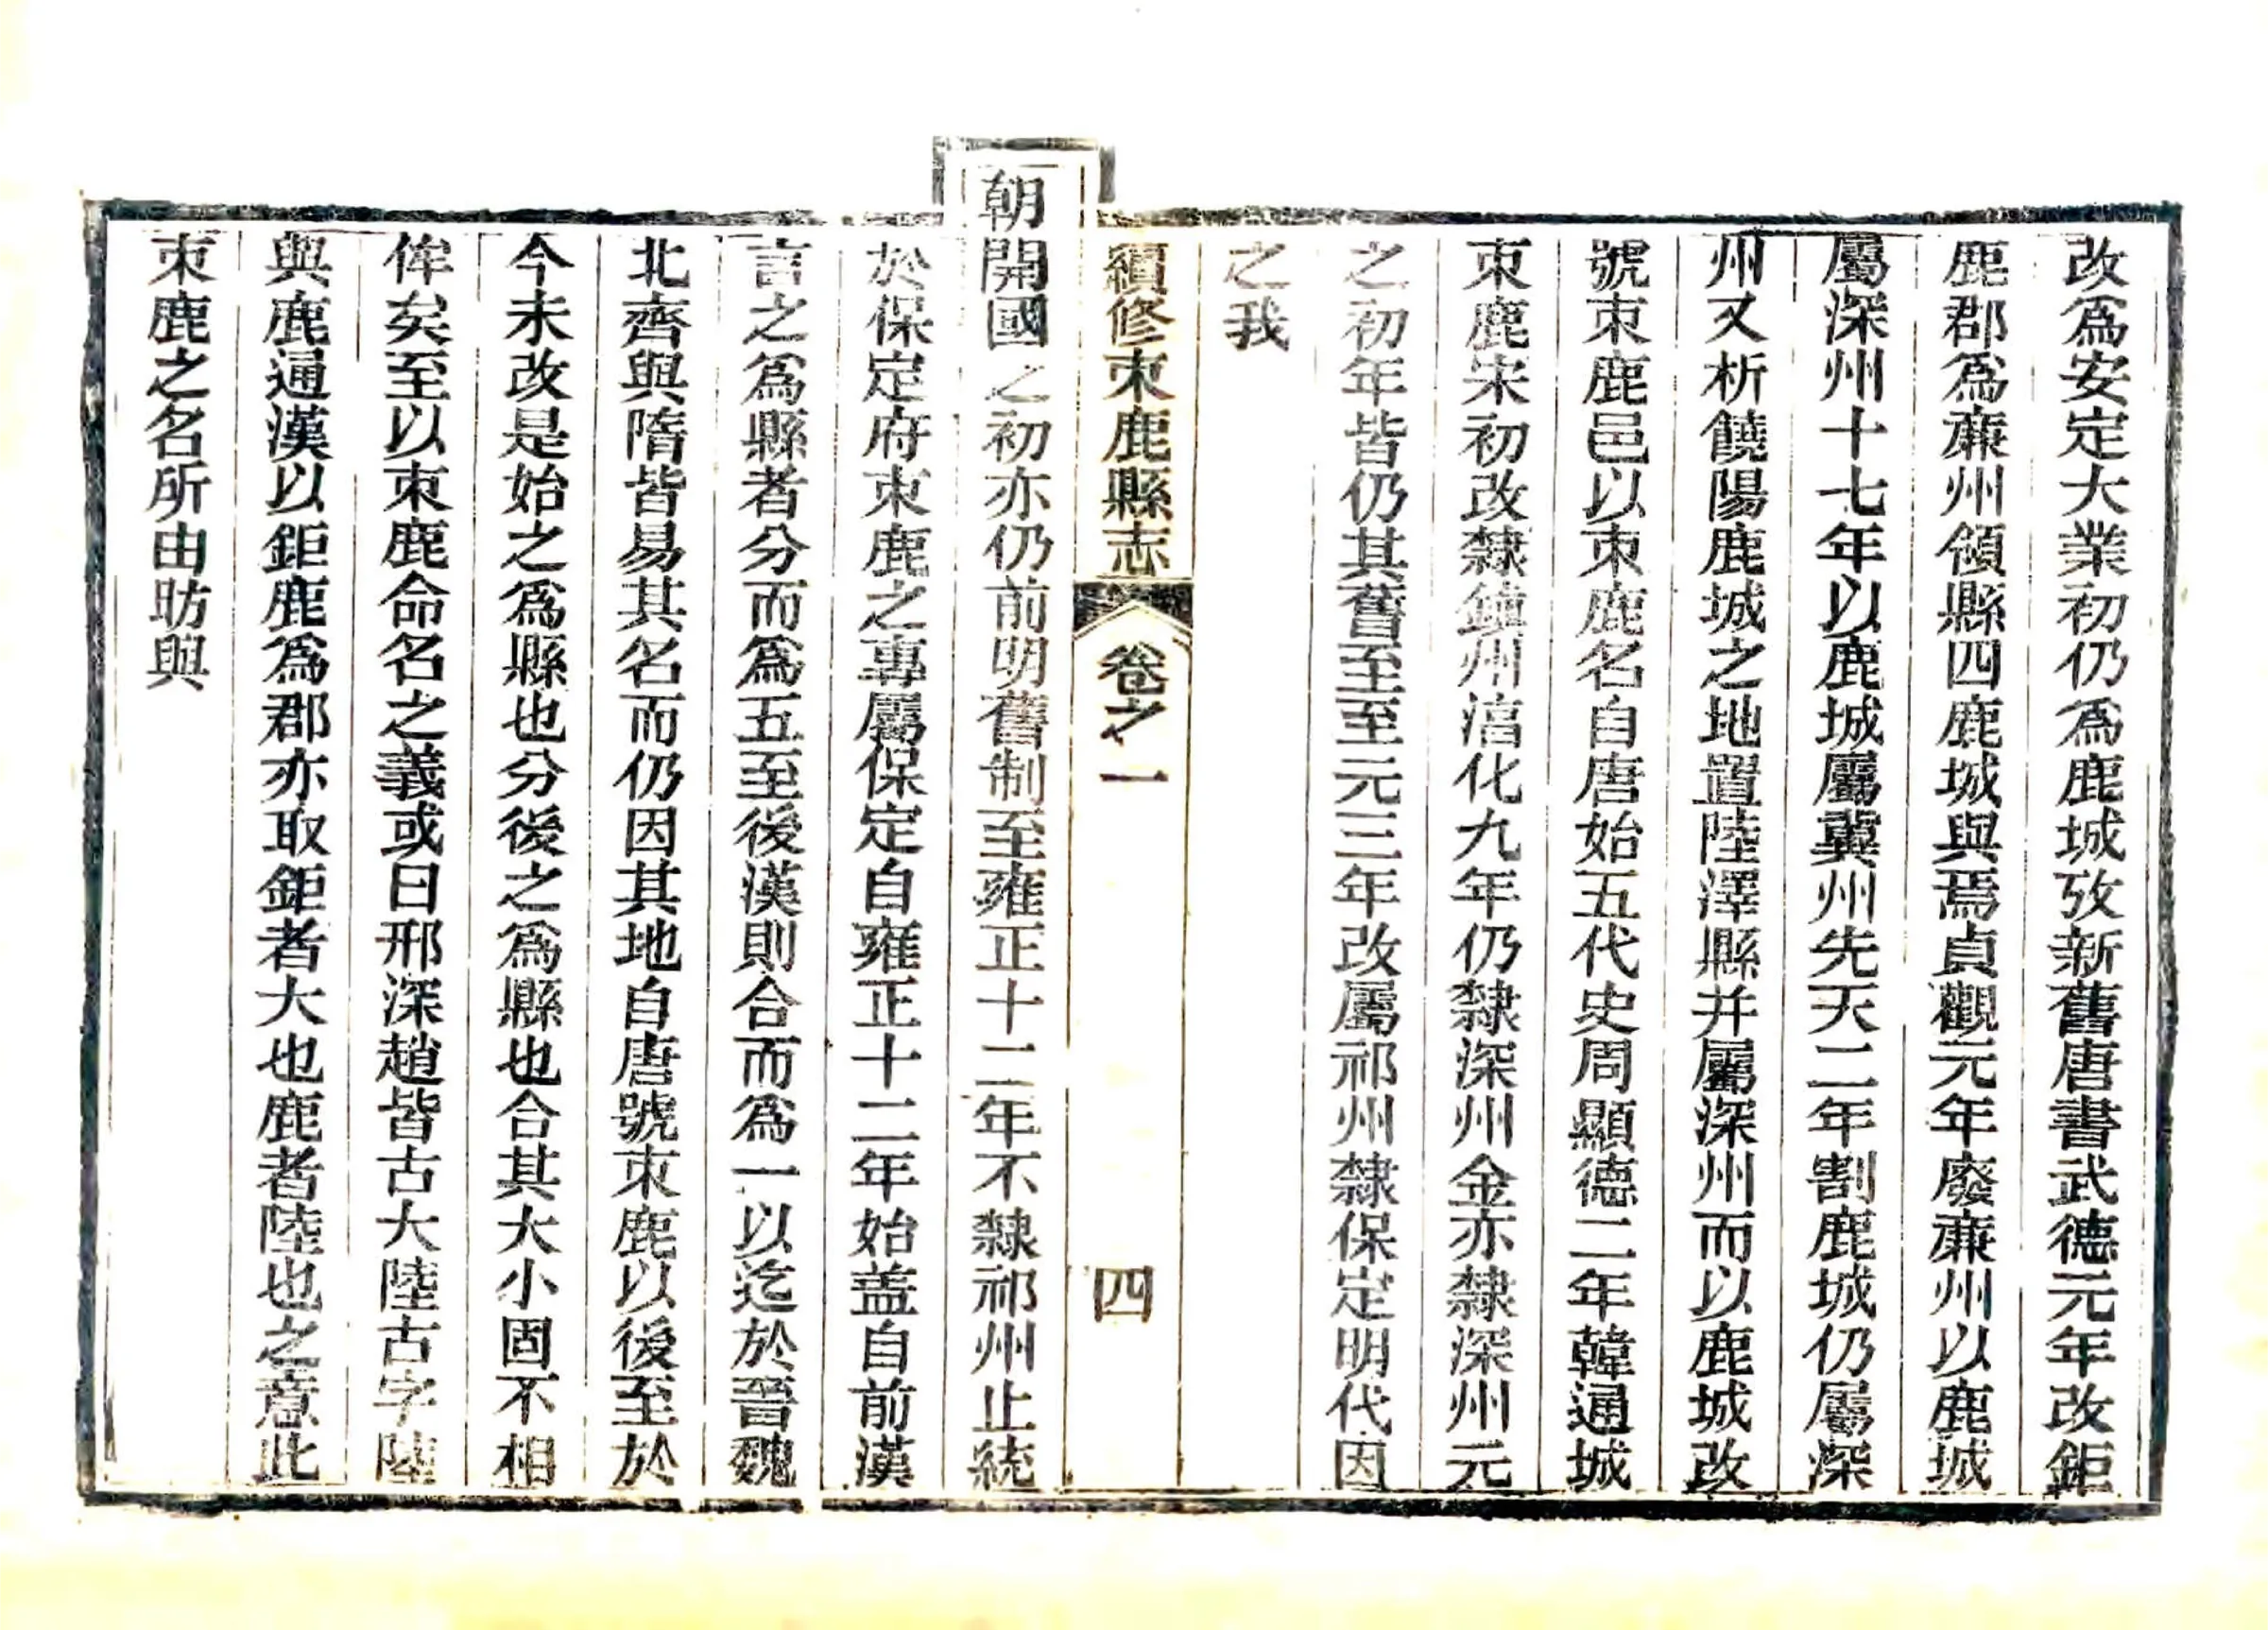 改爲安定大業初仍爲鹿城攷新舊唐書武德元年改鉅
鹿郡爲亷州領縣四鹿城與焉貞觀元年廢亷州以鹿城
屬深州十七年以鹿城屬冀州先天二年割鹿城仍屬深
州又析饒陽鹿城之地置陸澤縣并屬深州而以鹿城改
號束鹿邑以束鹿名自唐始五代史周顯德二年韓通城
束鹿宋初改隸鎮州淳化九年仍隸深州金亦隸深州元
之初年皆仍其舊至至元三年改屬祁州隸保定明代因
之我
續修束鹿縣志 卷之一 四
朝開國之初亦仍前明舊制至雍正十二年不隸祁州止統
於保定府束鹿之專屬保定自雍正十二年始盖自前漢
言之爲縣者分而爲五至後漢則合而爲一以迄於晉魏
北齊與隋皆易其名而仍因其地自唐號束鹿以後至於
今未改是始之爲縣也分後之爲縣也合其大小固不相
侔矣至以束鹿命名之義或曰邢深趙皆古大陸古字陸
與鹿通漢以鉅鹿爲郡亦取鉅者大也鹿者陸也之意此
束鹿之名所由昉與